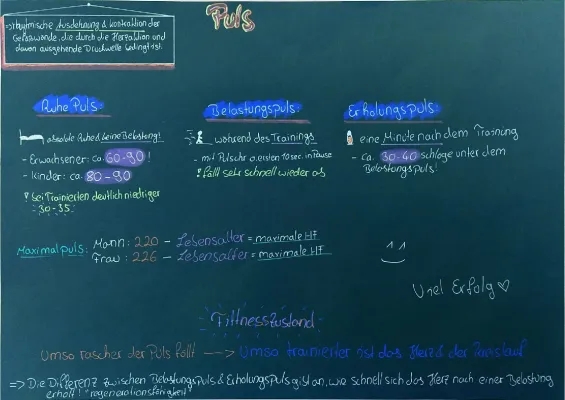 Puls
=> rhytmische Ausdehnung & kontraktion der
Gefäßwände, die durch die Herzaktion und
davon ausgehende Druckwelle bedingt ist.
Ruhe Puls:
absolute Ruhe & keine Belastung!
- Erwachsener: ca. 60-90!
- Kinder: ca. 80-90
! bei Trainierten deutlich niedriger
30-35
Belastungspuls:
während des Trainings
- mit Pulsuhr o. ersten 10 sec. in Pause
! fällt sehr schnell wieder ab
Erholungspuls:
eine Minute nach dem Training
- ca. 30-40 schläge unter dem
Belastungspuls!
Maximalpuls:
Mann: 220 - Lebensalter = maximale HF
Frau: 226 - Lebensalter = maximale HF
Viel Erfolg ♡
Fittnesszustand
Umso rascher der Puls fällt --> umso trainierter ist das Herz & der Kreislauf
=> Die Differenz zwischen Belastungspuls & Erholungspuls gist an, wie schnell sich das Herz nach einer Belastung
erholt! "regenerationsfähigkeit"